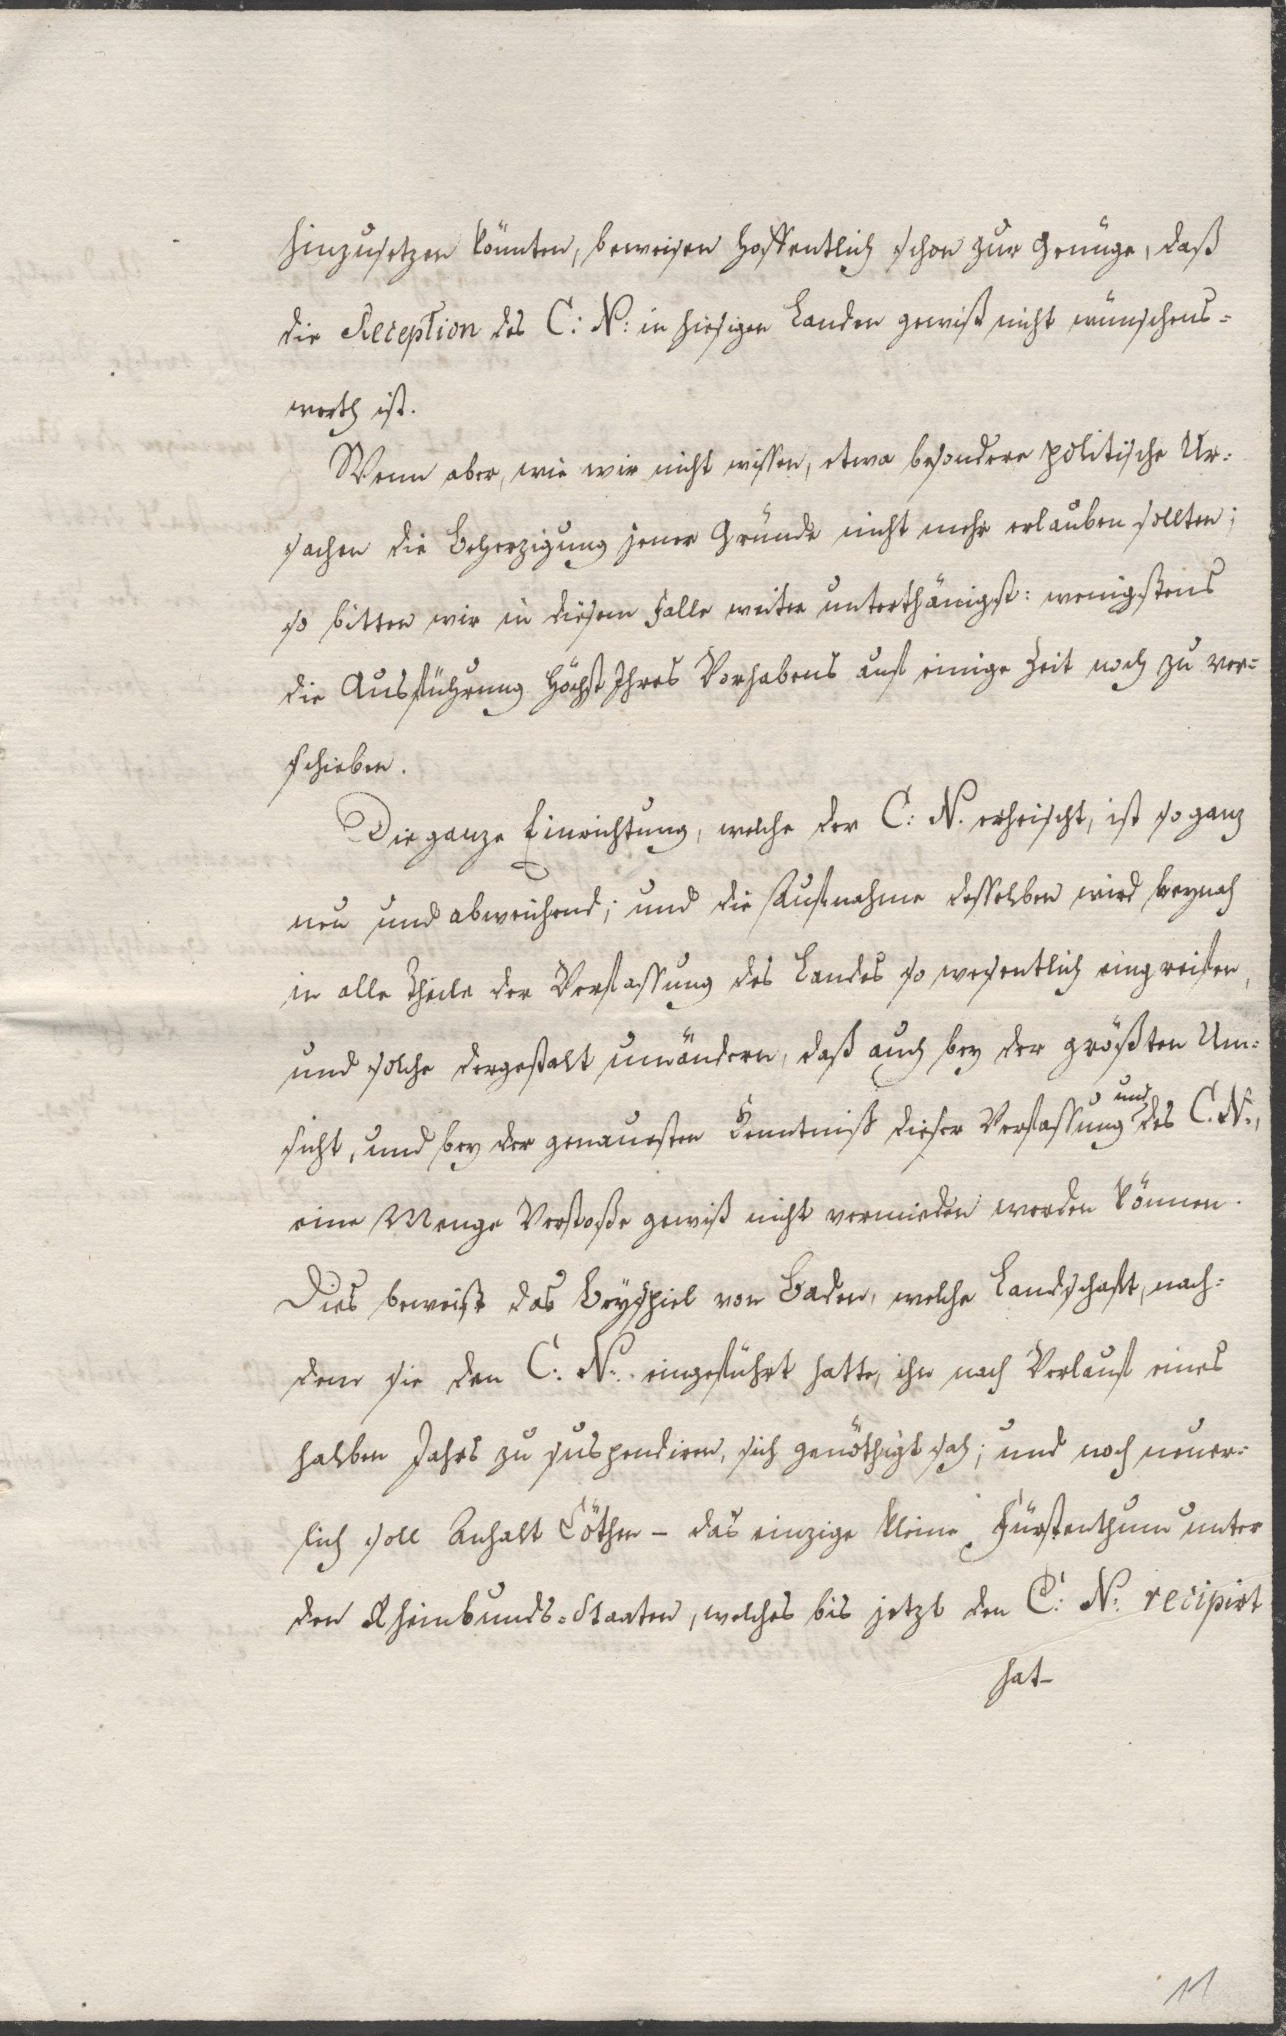 hinzusetzen könnten, beweisen hoffentlich schon zur Genüge, daß
die Reception des C: N: in hiesigen Landen gewiß nicht wünschens=
werth ist.
Wenn aber, wie wir nicht wissen, etwa besondere politische Ur=
sachen die Beherzigung jener Gründe nicht mehr erlauben sollten;
so bitten wir in diesem Falle weiter unterthänigst: wenigstens
die Ausführung Höchst Ihres Vorhabens auf einige Zeit noch zu ver=
schieben.
Die ganze Einrichtung, welche der C: N. erheischt, ist so ganz
neu und abweichend; und die Aufnahme desselben wird beynah
in alle Theile der Verfassung des Landes so wesentlich eingreifen,
und solche dergestalt umändern, daß auch bey der größten Um=
sicht, und bey der genauesten Kenntniß dieser Verfassung und des C. N.,
eine Menge Verstoße gewiß nicht vermieden werden können.
Dies beweißt das Beyspiel von Baden, welche Landschaft, nach=
dem sie den C: N:. eingeführt hatte, ihn nach Verlauf eines
halben Jahrs zu suspendiren, sich genöthigt sah; und noch neuer=
lich soll Anhalt Cöthen – das einzige kleine Fürstenthum unter
den Rheinbunds=Staaten, welches bis jetzt den C: N: recipirt
hat–
11